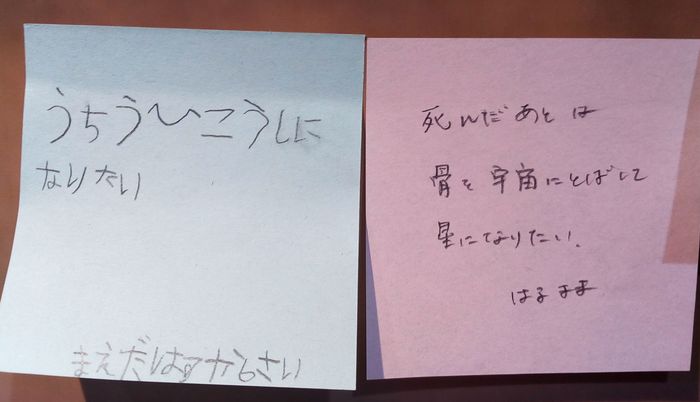 うちうひこうしに
なりたい
まえだはる から さい
死んだあとは
骨を宇宙にとばして
星になりたい.
はるまま